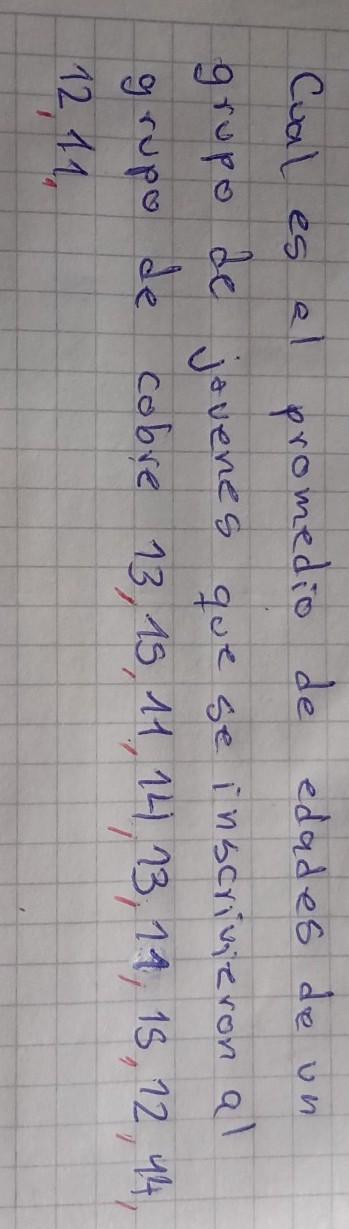 Cual es el promedio de edades de un
grupo de jovenes que se inscrivieron al
grupo de cobre 13, 15, 11, 14, 13, 11, 15, 12, 14,
12, 11,